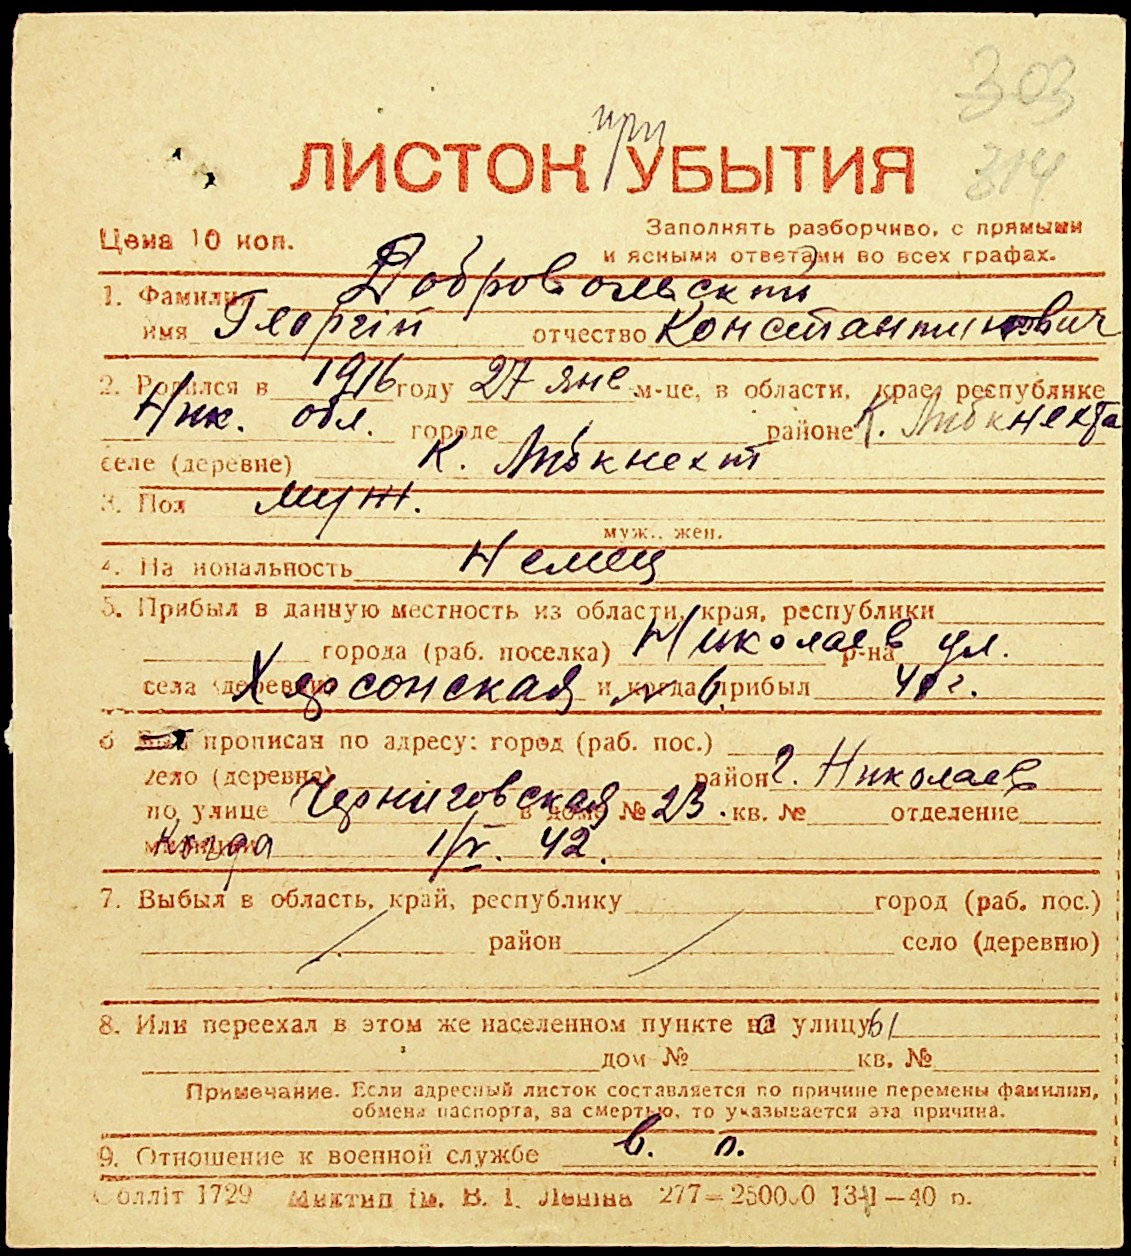 303
314
при
ЛИСТОК УБЫТИЯ
Цена 10 коп.
Заполнять разборчиво, с прямыми
и ясными ответами во всех графах.
1. Фамилия Добровольский
имя Георгій отчество Константинович
2. Родился в 1916 году 27 янв м-це, в области, крае, республике
Ник. обл. городе районе К. Либкнехта
селе (деревне) К. Либкнехт
3. Пол муж.
муж., жен.
4. Национальность Немец
5. Прибыл в данную местность из области, края, республики
города (раб. поселка) Николаев р-на ул.
села (деревни) Херсонская и когда прибыл
6 прописан по адресу: город (раб. пос.)
село (деревня) район г. Николаев
по улице Черниговская в доме № 23. кв. № отделение
милиции Когда 1/IV. 42.
7. Выбыл в область, край, республику город (раб. пос.)
район село (деревню)
8. Или переехал в этом же населенном пункте на улицу
дом № кв. №
Примечание. Если адресный листок составляется по причине перемены фамилии,
обмена паспорта, за смертью, то указывается эта причина.
9. Отношение к военной службе в. п.
Облліт 1729 Миктип ім. В. І. Леніна 277—250000 13-II—40 р.